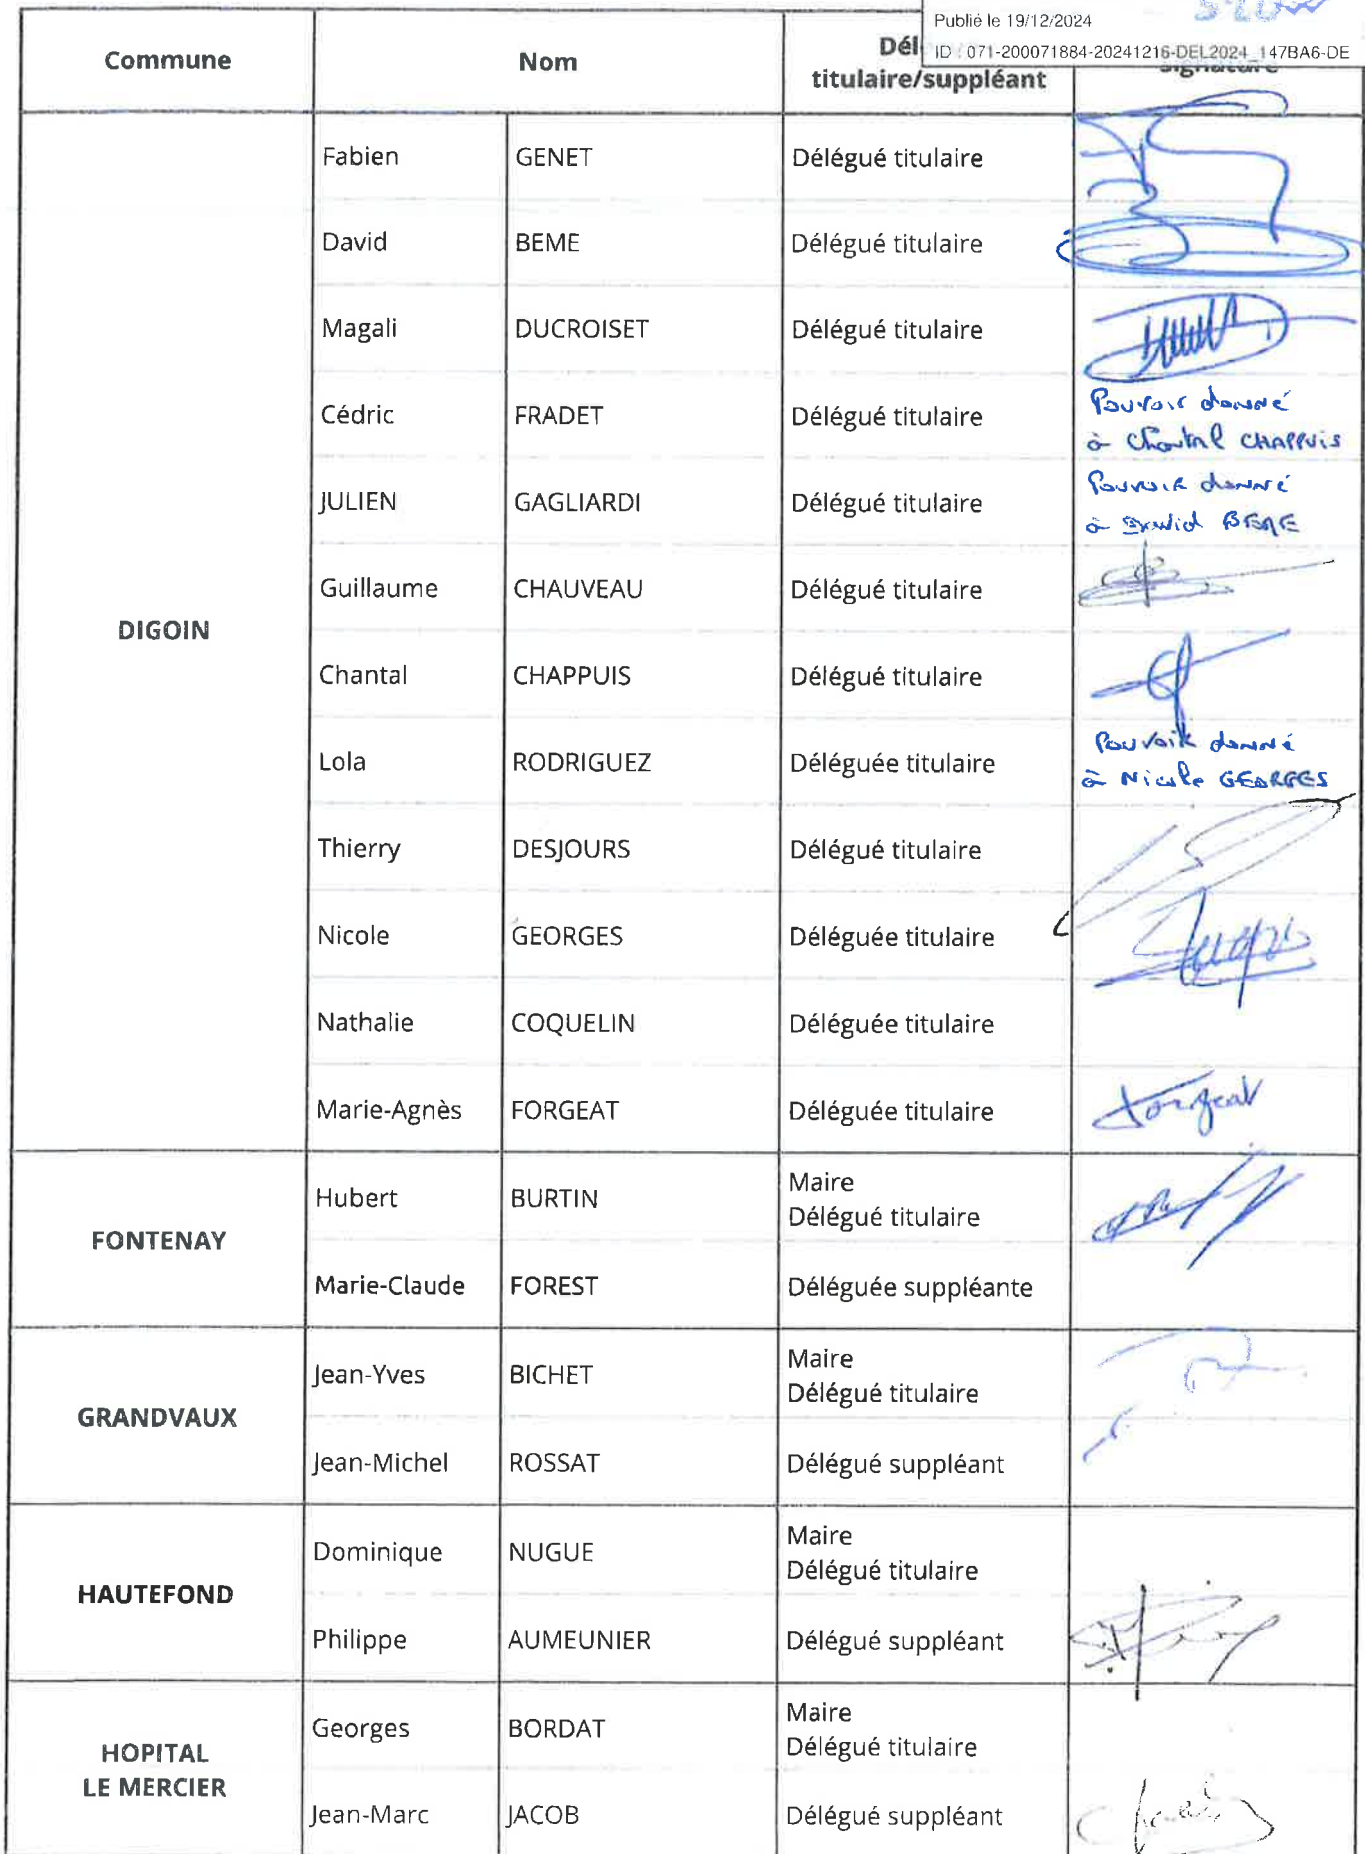 Publié le 19/12/2024
ID : 071-200071884-20241216-DEL2024_147BA6-DE
Commune Nom Dél titulaire/suppléant signature
DIGOIN
Fabien GENET Délégué titulaire
David BEME Délégué titulaire
Magali DUCROISET Délégué titulaire
Cédric FRADET Délégué titulaire Pouvoir donné
à Chantal CHAPPUIS
JULIEN GAGLIARDI Délégué titulaire Pouvoir donné
à David BEME
Guillaume CHAUVEAU Délégué titulaire
Chantal CHAPPUIS Délégué titulaire
Lola RODRIGUEZ Déléguée titulaire Pouvoir donné
à Nicole GEORGES
Thierry DESJOURS Délégué titulaire
Nicole GEORGES Déléguée titulaire
Nathalie COQUELIN Déléguée titulaire
Marie-Agnès FORGEAT Déléguée titulaire Forgeat
FONTENAY
Hubert BURTIN Maire
Délégué titulaire
Marie-Claude FOREST Déléguée suppléante
GRANDVAUX
Jean-Yves BICHET Maire
Délégué titulaire
Jean-Michel ROSSAT Délégué suppléant
HAUTEFOND
Dominique NUGUE Maire
Délégué titulaire
Philippe AUMEUNIER Délégué suppléant
HOPITAL
LE MERCIER
Georges BORDAT Maire
Délégué titulaire
Jean-Marc JACOB Délégué suppléant